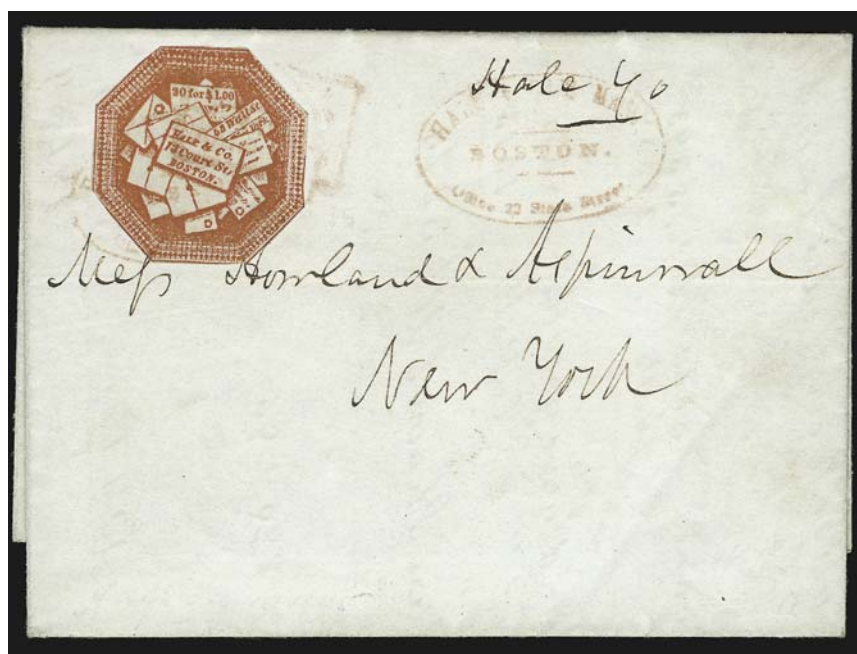 20 for $1.00
58 Wall St
HALE & Co.
13 COURT St.
BOSTON.
Hale & Co
BOSTON.
Office 23 State Street
Mess Howland & Aspinwall
New York